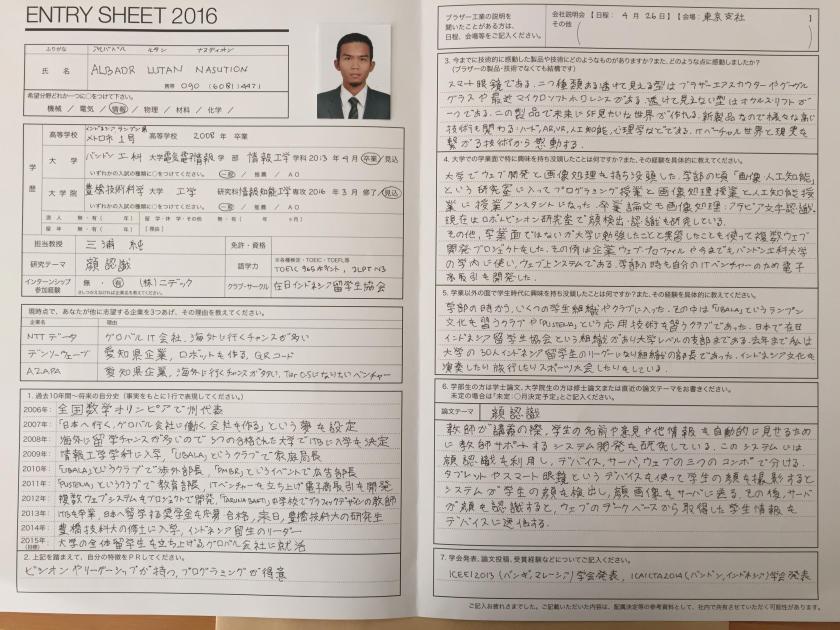 ENTRY SHEET 2016
ふりがな アルバドル ルタン ナスティオン
氏 名 ALBADR LUTAN NASUTION
携帯 090 (6081) 4471
希望分野どれか一つに○をつけて下さい。
機械 ／ 電気 ／ 情報 ／ 物理 ／ 材料 ／ 化学 ／
学歴
高等学校 インドネシア ランプン州 メトロネ1高 高等学校 2008年 卒業
大学 バンドン工科 大学 電気電子情報 学部 情報工学 学科 2013年4月 卒業／見込
いずれかの入試の種類に○をつけて下さい。 一般 ／ 推薦 ／ AO
大学院 豊橋技術科学 大学 工学 研究科 情報知能工学 専攻 2016年3月 修了／見込
いずれかの入試の種類に○をつけて下さい。 一般 ／ 推薦 ／ AO
浪人 無・有（ 年） 留学・休学・その他 無・有（ 年 ヶ月）
留年 無・有（ 年）【理由】
担当教授 三浦 純 免許・資格
研究テーマ 顔認識 語学力 ※各種検定・TOEIC・TOEFL等 TOEIC 965ポイント, JLPT N3
インターンシップ参加経験 無・有 (株)ニデック クラブ・サークル 在日インドネシア留学生協会
現時点で、あなたが他に志望する企業を3つあげ、その理由を教えてください。
企業名 理由
NTTデータ グロバルIT会社, 海外に行くチャンスが多い
デンソーウェーブ 愛知県企業, ロボットも作る, QRコード
AZAPA 愛知県企業, 海外に行くチャンスが多い,
1. 過去10年間〜将来の自分史（事実をもとに1行で表現してください。）
2006年: 全国数学オリンピアで州代表
2007年: 「日本へ行く, グロバル会社に働く, 会社を作る」という夢を設定
2008年: 海外に留学チャンスが多いので3つの合格された大学でITBに入学を決定
2009年: 情報工学学科に入学, 「UBALA」というクラブで家庭局長
2010年: 「UBALA」というクラブで渉外部長, 「PMBR」というイベントで広告部長
2011年: 「PUSTENA」というクラブで教育部長, ITベンチャーを立ち上げ電子商取引を開発
2012年: 複数ウェブシステムをプロジェクトで開発, 「TARUNA BAKTI」中学校でグラフィックデザインの教師
2013年: ITBを卒業, 日本へ留学する奨学金を応募合格, 来日, 豊橋技科大の研究生
2014年: 豊橋技科大の修士に入学, インドネシア留生のリーダー
2015年:(目標) 大学の全体留学生を立ち上げるグロバル会社に就活
2. 上記を踏まえて、自分の特徴をPRしてください。
ビジオンやリーゲーシップが持つ, プログラミングが得意
ブラザー工業の説明を聞いたことがある方は、日程、会場等をご記入ください。
会社説明会【日程: 4月26日】【会場: 東京支社 】
その他（ ）
3. 今までに技術的に感動した製品や技術にどのようなものがありますか？また、どのような点に感動しましたか？
(ブラザーの製品・技術でなくても結構です)
スマート眼鏡である。二つ種類ある透けて見える型はブラザーエアスカウターやグーグル
グラスや最近マイクロソフトホロレンスがある。透けて見えない型はオカルスリフトが
一つである。この製品で未来にSF見たいな世界が作れる。新製品なので様々な高い
技術も関わる：ハード, AR, VR, 人工知能, 心理学などである。ITバーチャル世界と現実を
繋がる技術から感動する。
4. 大学での学業面で特に興味を持ち没頭したことは何ですか？また、その経験を具体的に教えてください。
大学でウェブ開発と画像処理も持ち没頭した。学部の頃「画像・人工知能」
という研究室に入ってプログラミング授業と画像処理授業と人工知能授
業にアシスタントになった。卒業論文も画像処理：アラビア文字認識。
現在はロボ・ビジオン研究室で顔検出・認識も研究している。
その他, 学業面ではないが大学に勉強したことと実習したことも使って複数ウェブ
開発プロジェクトをした。その例は企業ウェブ・プロファイルや今までもバンドン工科大学
の学内に使い, ウェブ上システムである。学部の時も自分のITベンチャーのため電子
商取引も開発した。
5. 学業以外の面で学生時代に興味を持ち没頭したことは何ですか？また、その経験を具体的に教えてください。
学部の時から, いくつの学生組織やクラブに入った。その中は「UBALA」というランプン
文化を習うクラブや「PUSTENA」という応用技術を習うクラブであった。日本で在日
インドネシア留学生協会という組織があり大学レベルの支部まである。去年まで私は
大学の30人インドネシア留学生のリーダーになり組織の部長であった。インドネシア文化を
演奏したり旅行したりスポーツ大会したりもしている。
6. 学部生の方は学士論文、大学院生の方は修士論文または直近の論文テーマをお書きください。
未定の場合は「未定：○月決定予定」とご記入ください。
論文テーマ 顔認識
教師が講義の際, 学生の名前や意見や他情報も自動的に見せるため
に教師サポートするシステム開発も研究している。このシステムは
顔認識を利用し, デバイス, サーバ, ウェブの三つのコンポで分ける。
タブレットやスマート眼鏡というデバイスを使って学生の顔も撮影すると
システムが学生の顔を検出し, 顔画像をサーバに送る。その後, サーバ
が顔も認識すると, ウェブのデータベースから取得した学生情報も
デバイスに送信する。
7. 学会発表、論文投稿、受賞経験などについてご記入ください。
ICEEI2013 (バンギ, マレーシア) 学会発表, ICAICTA2014 (バンドン, インドネシア) 学会発表
ご記入お疲れさまでした。ご記載いただいた内容は、配属決定等の参考資料として、社内で共有させていただく可能性があります。